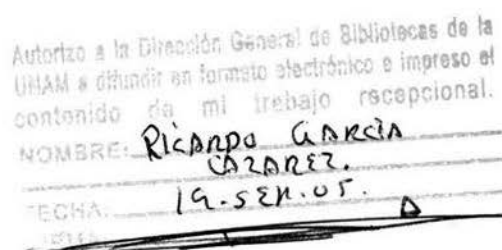 Autorizo a la Dirección General de Bibliotecas de la
UNAM a difundir en formato electrónico e impreso el
contenido de mi trabajo recepcional.
NOMBRE: RICARDO GARCIA
CAZAREZ.
FECHA: 19.SEP.05.